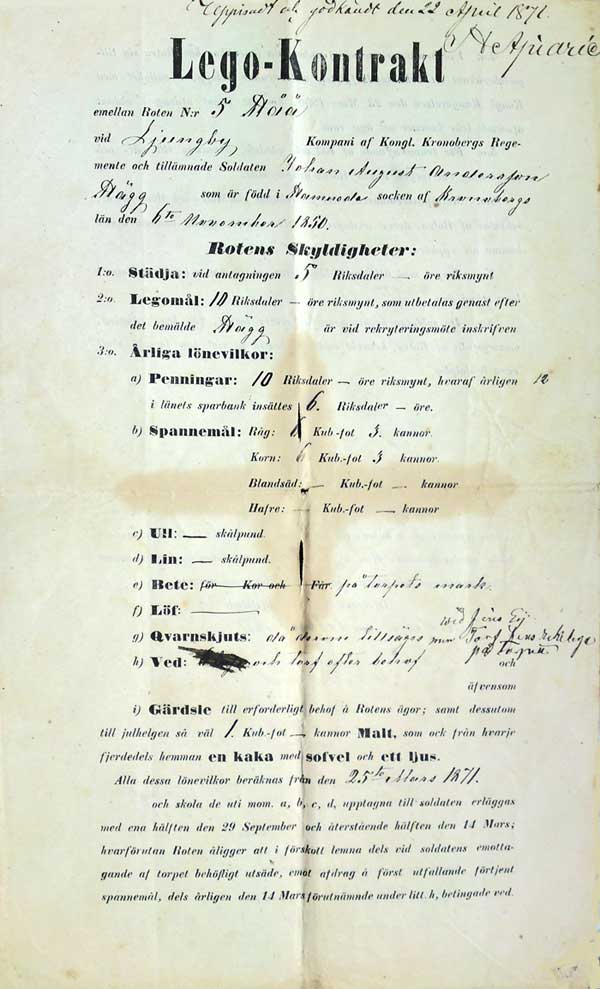 Uppvisadt och godkändt den 22 April 1871.
Lego-Kontrakt
emellan Roten N:r 5 Håå
vid Ljungby Kompani af Kongl. Kronobergs Rege-
mente och tillämnade Soldaten Johan August Andersson
Hägg som är född i Hamneda socken af Kronobergs
län den 6te November 1850.
Rotens Skyldigheter:
1:o. Städja: vid antagningen 5 Riksdaler — öre riksmynt
2:o. Legomål: 10 Riksdaler — öre riksmynt, som utbetalas genast efter
det bemälde Hägg är vid rekryteringsmöte inskrifven
3:o. Årliga lönevilkor:
a) Penningar: 10 Riksdaler — öre riksmynt, hvaraf årligen 12
i länets sparbank insättes 6. Riksdaler — öre.
b) Spannemål: Råg: Kub.-fot 3. kannor.
Korn: 6 Kub.-fot 3 kannor.
Blandsäd: — Kub.-fot — kannor
Hafre: — Kub.-fot — kannor
c) Ull: — skålpund.
d) Lin: — skålpund.
e) Bete: för Kor och Får. på torpets mark.
f) Löf: —
g) Qvarnskjuts: då derom tillsäges
h) Ved: och torf efter behof och
wed fins Ej
men Torf fins
på Torpet
äfvensom
i) Gärdsle till erforderligt behof å Rotens ägor; samt dessutom
till julhelgen så väl 1. Kub.-fot — kannor Malt, som ock från hvarje
fjerdedels hemman en kaka med sofvel och ett ljus.
Alla dessa lönevilkor beräknas från den 25te Mars 1871.
och skola de uti mom. a, b, c, d, upptagna till soldaten erläggas
med ena hälften den 29 September och återstående hälften den 14 Mars;
hvarförutan Roten åligger att i förskott lemna dels vid soldatens emotta-
gande af torpet behöfligt utsäde, emot afdrag å först utfallande förtjent
spannemål, dels årligen den 14 Mars förutnämnde under litt. h, betingade ved.